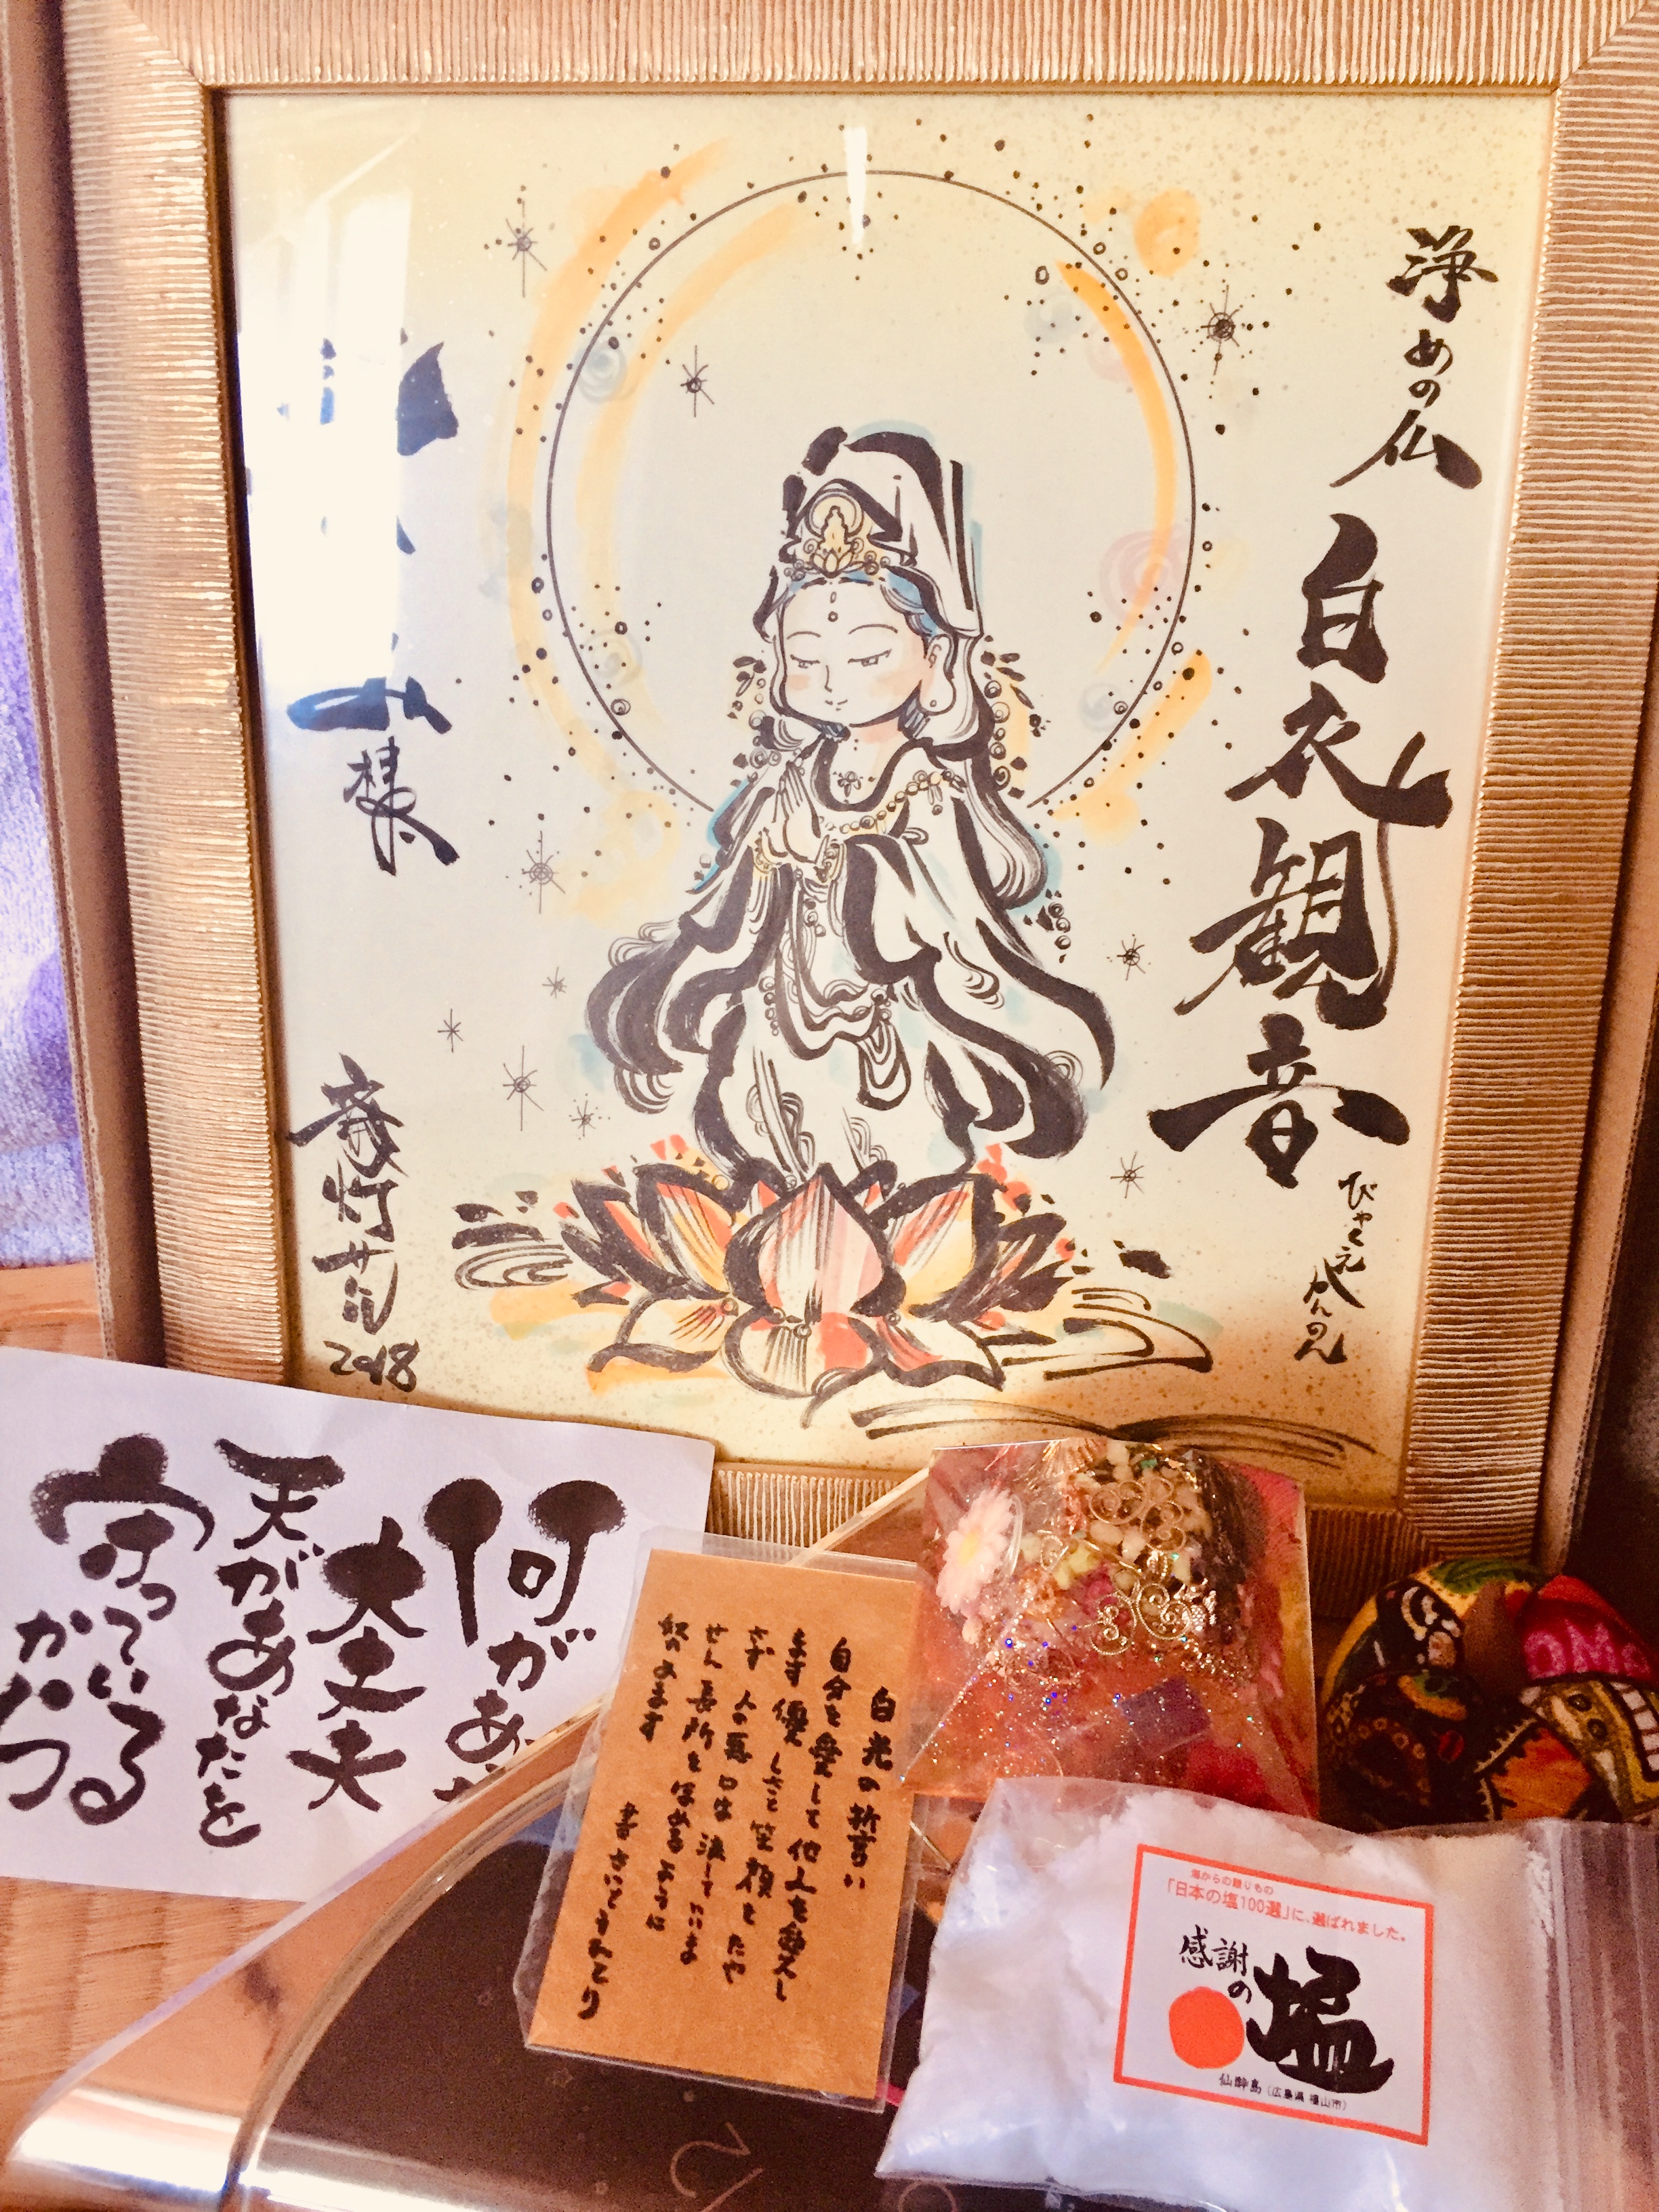 浄めの仏
白衣観音
びゃくえかんのん
様
斎灯サトル
2018
何があ
大丈夫
天があなたを
守っている
からっ
白光の誓い
自分を愛して他人を愛し
ます 優しさと笑顔をたや
さず 人の悪口は決していいま
せん 長所をほめるように
努めます
書 さいとうひとり
海からの贈りもの
「日本の塩100選」に、選ばれました。
感謝の塩
仙酔島(広島県 福山市)